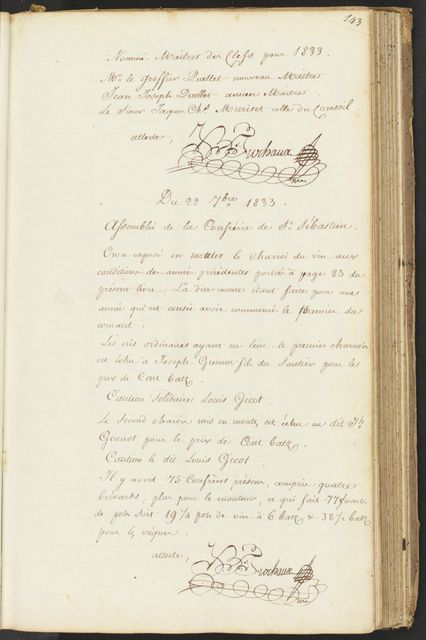 143
Nommé Maîtres des Clefs pour 1833.
Mr. le Greffier Quellet nouveau Maître
Jean Joseph Quellet ancien Maître
Le Sieur Jaque Chs. Muriset celle du Conseil
atteste,
Frochaux
Du 22 7bre 1833.
Assemblé de la Confrérie de St. Sébastien.
On a exposé en montes le charroi du vin aux
conditions des année précédentes portée à page 83 du
présent livre. La dite monte étant faite pour une
année qui est censée avoir commencé le premier du
courant.
Les cris ordinaires ayant eu lieu le premier charroi
est échu à Joseph Guenot fils du Sautier pour le
prix de Cent batz.
Caution Solidaire Louis Gicot.
Le Second charoi mis en montes est échu au dit Jh.
Guenot pour le prix de Cent batz.
Caution le dit Louis Gicot.
Il y avoit 75 Confrères présens, compris quatre
brévards, plus pour le monteur, ce qui fait 77 quarts
de pots soit 19 1/4 pots de vin à 6 batz & 38 1/2 batz
pour les
atteste,
Frochaux